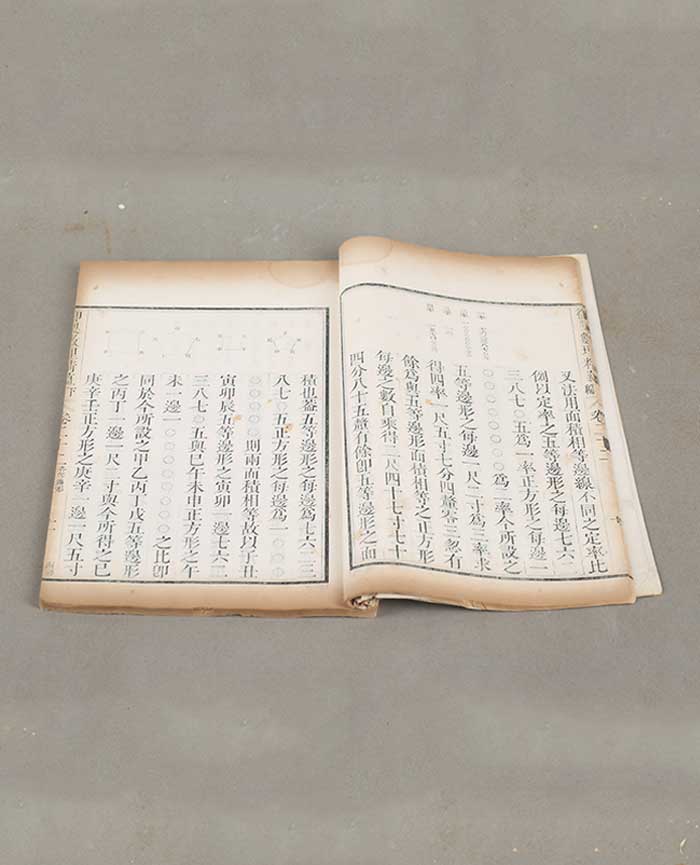 卷二十二
又法用面積相等邊線不同之定率比
例以定率之五等邊形之每邊七六二
三八七〇五爲一率正方形之每邊一
〇〇〇〇〇〇〇〇爲二率今所設之
五等邊形之每邊一尺二寸爲三率求
得四率一尺五寸七分四釐零三忽有
餘爲與五等邊形面積相等之正方形
每邊之數自乘得二尺四十七寸七十
四分八十五釐有餘卽五等邊形之面
積也葢五等邊形之每邊爲七六二三
八七〇五正方形之每邊爲一〇〇〇
〇〇〇〇〇則兩面積相等故以子丑
寅卯辰五等邊形之寅卯一邊七六二
三八七〇五與巳午未申正方形之午
未一邊一〇〇〇〇〇〇〇〇之比卽
同於今所設之甲乙丙丁戊五等邊形
之丙丁一邊一尺二寸與今所得之己
庚辛壬正方形之庚辛一邊一尺五寸